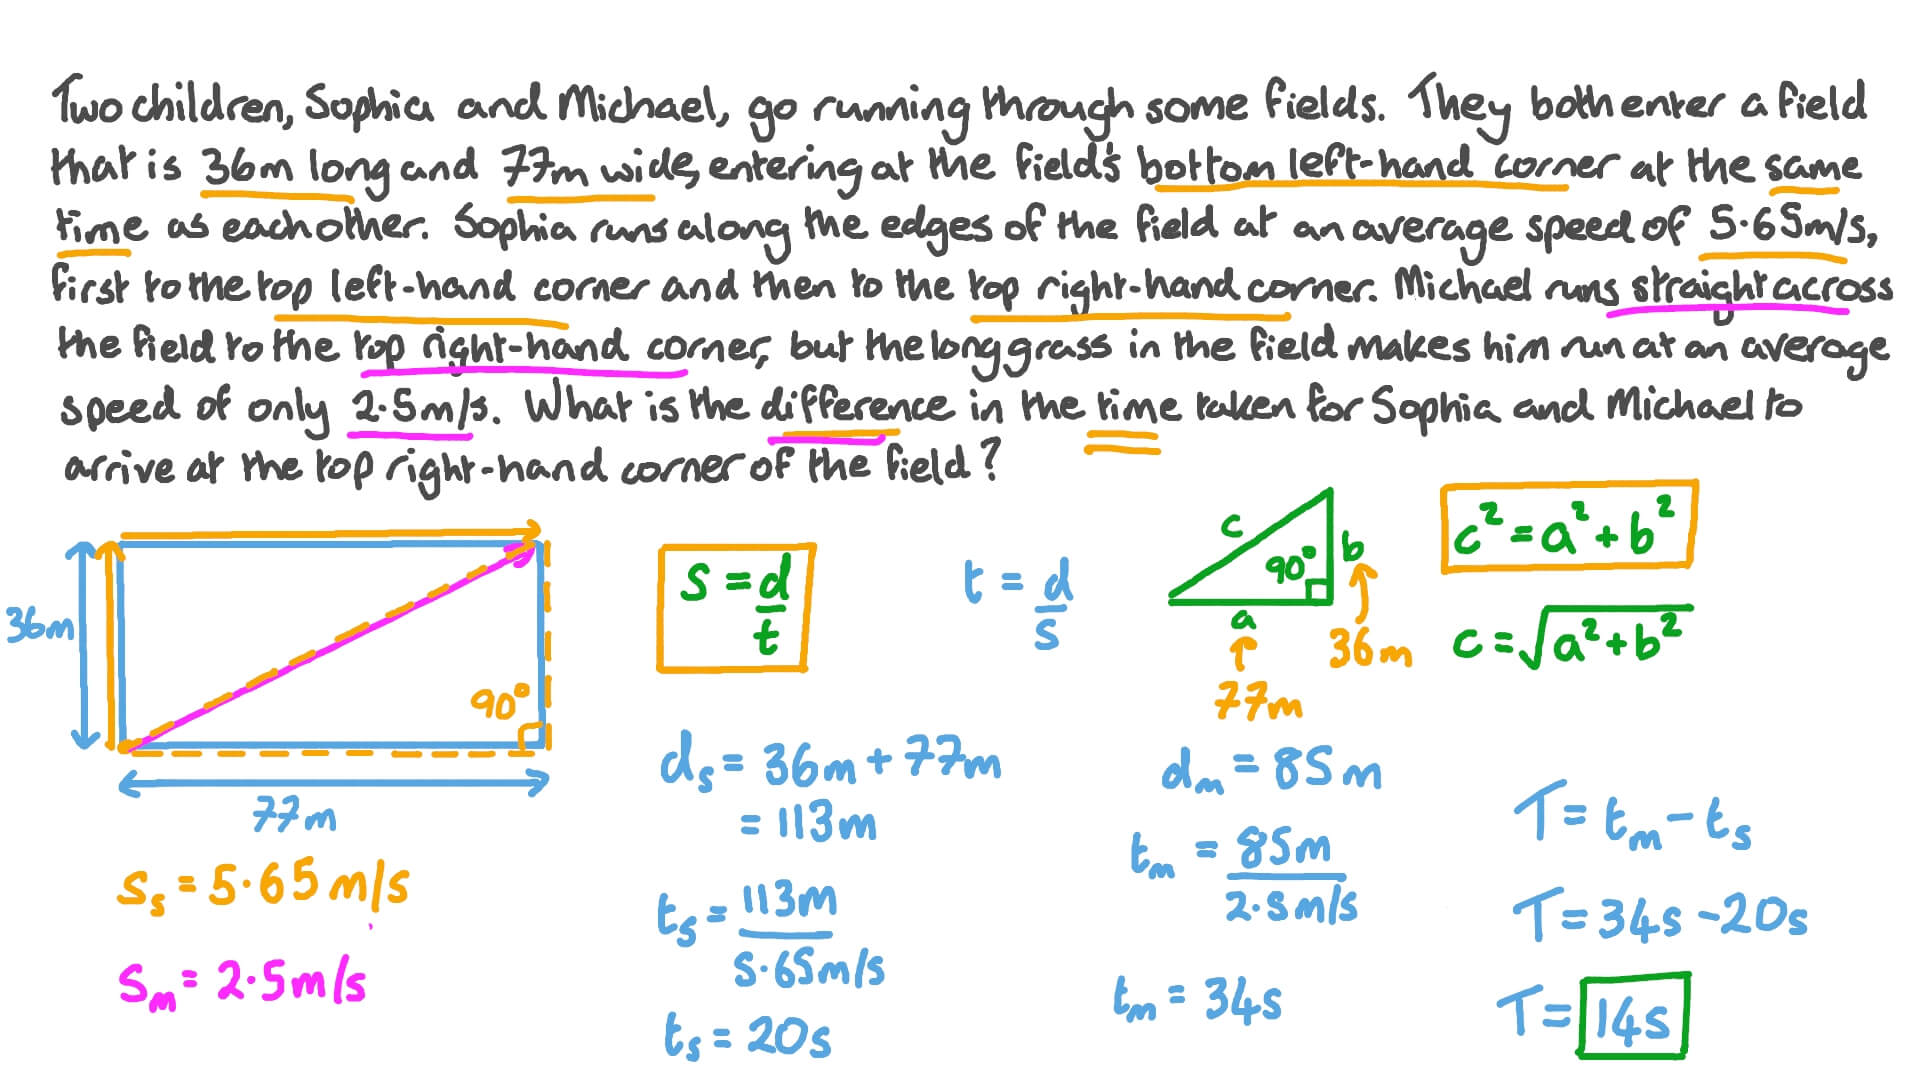 Two children, Sophia and Michael, go running through some fields. They both enter a field
that is 36m long and 77m wide, entering at the field's bottom left-hand corner at the same
time as each other. Sophia runs along the edges of the field at an average speed of 5.65m/s,
first to the top left-hand corner and then to the top right-hand corner. Michael runs straight across
the field to the top right-hand corner, but the long grass in the field makes him run at an average
speed of only 2.5m/s. What is the difference in the time taken for Sophia and Michael to
arrive at the top right-hand corner of the field?
36m
90°
77m
sₛ = 5.65 m/s
sₘ = 2.5m/s
s = d
t
dₛ = 36m + 77m
= 113m
tₛ = 113m
5.65m/s
tₛ = 20s
t = d
s
c
90°
b
a
36m
77m
dₘ = 85m
tₘ = 85m
2.5m/s
tₘ = 34s
c² = a² + b²
c = √a² + b²
T = tₘ - tₛ
T = 34s - 20s
T = 14s